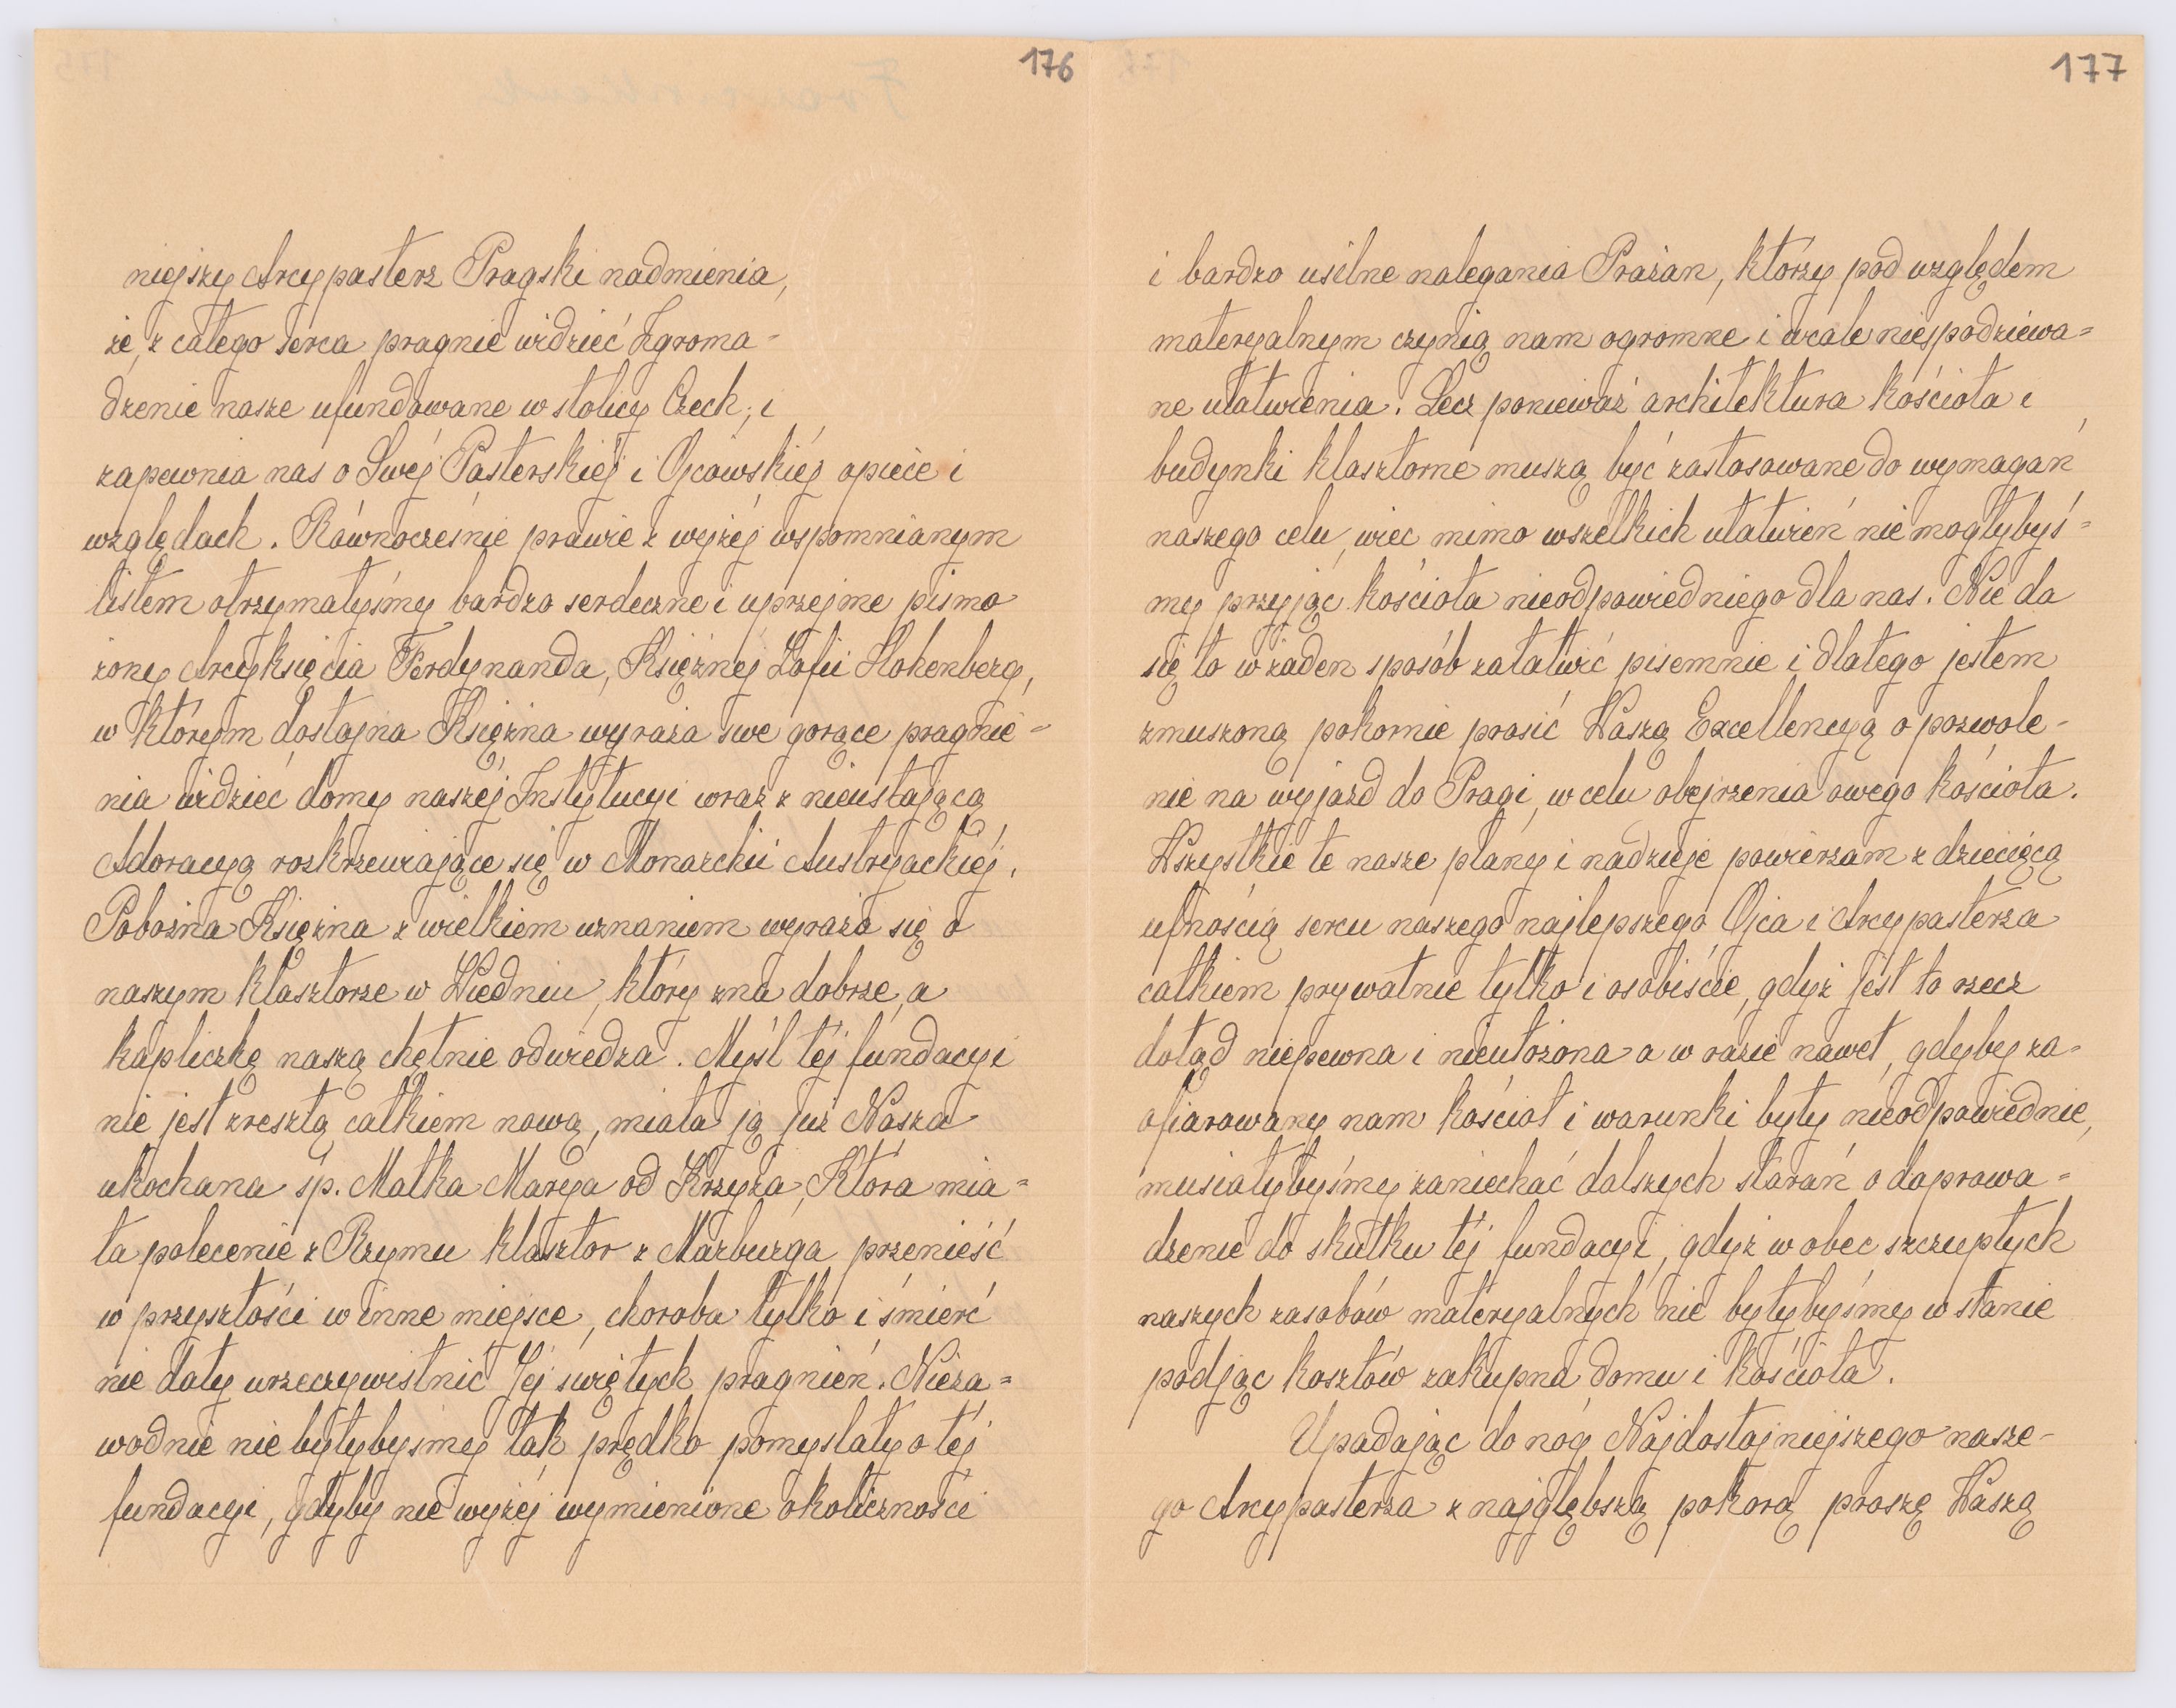 176
niejszy Arcypasterz Pragski nadmienia,
że, z całego serca pragnie widzieć Zgroma-
dzenie nasze ufundowane w stolicy Czech, i
zapewnia nas o Swéj Pasterskiéj i Ojcowskiéj opiece i
względach. Równocześnie prawie z wyżéj wspomnianym
listem otrzymałyśmy bardzo serdeczne i uprzejme pismo
żony Arcyksięcia Ferdynanda, Księżnej Zofii Hohenberg,
w którym dostojna Księżna wyraża swe gorące pragnie-
nia widzieć domy naszéj Instytucyi wraz z nieustającą
Adoracyą rozkrzewiające się w Monarchii Austryackiéj.
Pobożna Księżna z wielkiem uznaniem wyraża się o
naszym klasztorze w Wiedniu, który zna dobrze, a
kapliczkę naszą chętnie odwiedza. Myśl téj fundacyi
nie jest zresztą całkiem nową, miała ją już Nasza
ukochana śp. Matka Marya od Krzyża, Która mia=
ła polecenie z Rzymu klasztor z Marburga przenieść
w przyszłości w inne miejsce, choroba tylko i śmierć
nie dały urzeczywistnić Jéj świętych pragnień. Nieza=
wodnie nie byłybyśmy tak prędko pomyślały o téj
fundacyi, gdyby nie wyżéj wymienione okoliczności
177
i bardzo usilne nalegania Prażan, którzy pod względem
materyalnym czynią nam ogromne i wcale niespodziewa=
ne ułatwienia. Lecz ponieważ architektura kościoła i
budynki klasztorne muszą być zastosowane do wymagań
naszego celu, więc mimo wszelkich ułatwień nie mogłybyś=
my przyjąć kościoła nieodpowiedniego dla nas. Nie da
się to w żaden sposób załatwić pisemnie i dlatego jestem
zmuszoną pokornie prosić Waszą Excellencyą o pozwole-
nie na wyjazd do Pragi, w celu obejrzenia owego kościoła.
Wszystkie te nasze plany i nadzieje powierzam z dziecięcą
ufnością sercu naszego najlepszego Ojca i Arcypasterza
całkiem prywatnie tylko i osobiście, gdyż jest to rzecz
dotąd niepewna i nieułożona a w razie nawet, gdyby za-
ofiarowany nam kościoł i warunki były nieodpowiednie,
musiałybyśmy zaniechać dalszych starań o doprowa=
dzenie do skutku téj fundacyi, gdyż wobec szczupłych
naszych zasobów materyalnych nie byłybyśmy w stanie
podjąc kosztów zakupna domu i kościoła.
Upadając do nóg Najdostojniejszego nasze-
go Arcypasterza z najgłębszą pokorą proszę Waszą